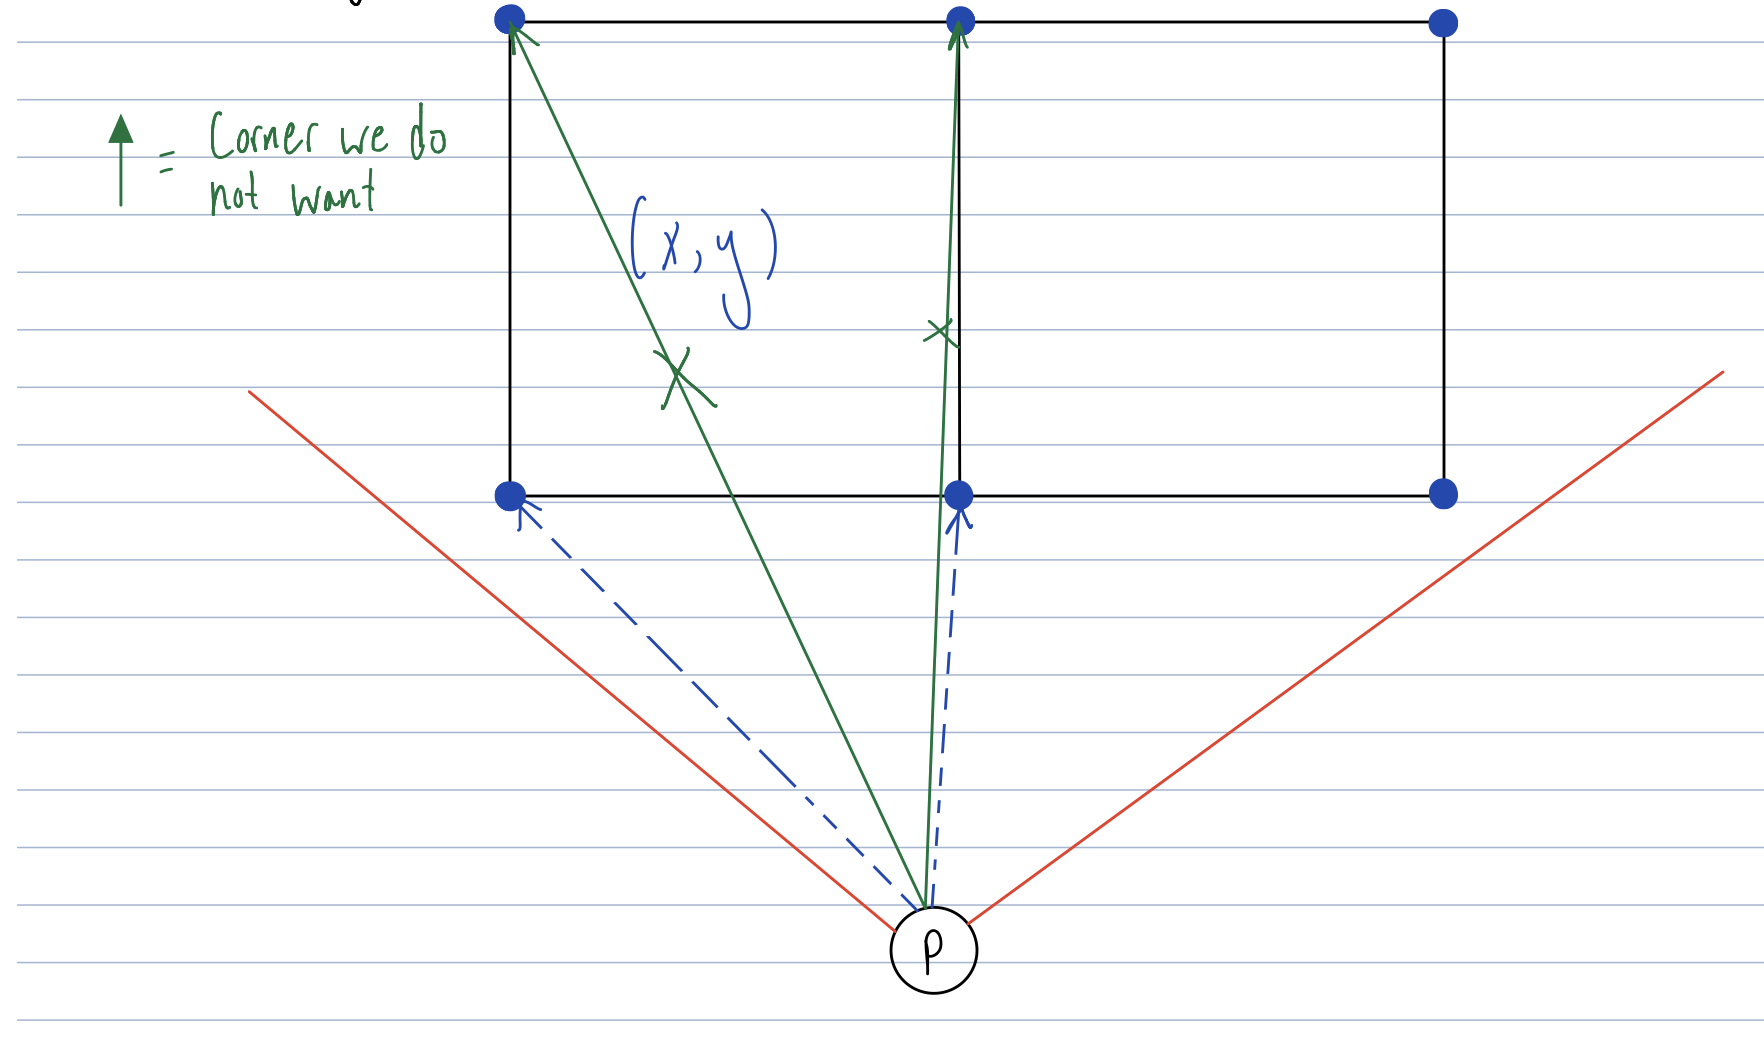 = Corner we do
not want
(x, y)
P